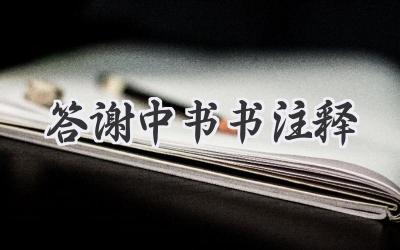 答谢中书书注释